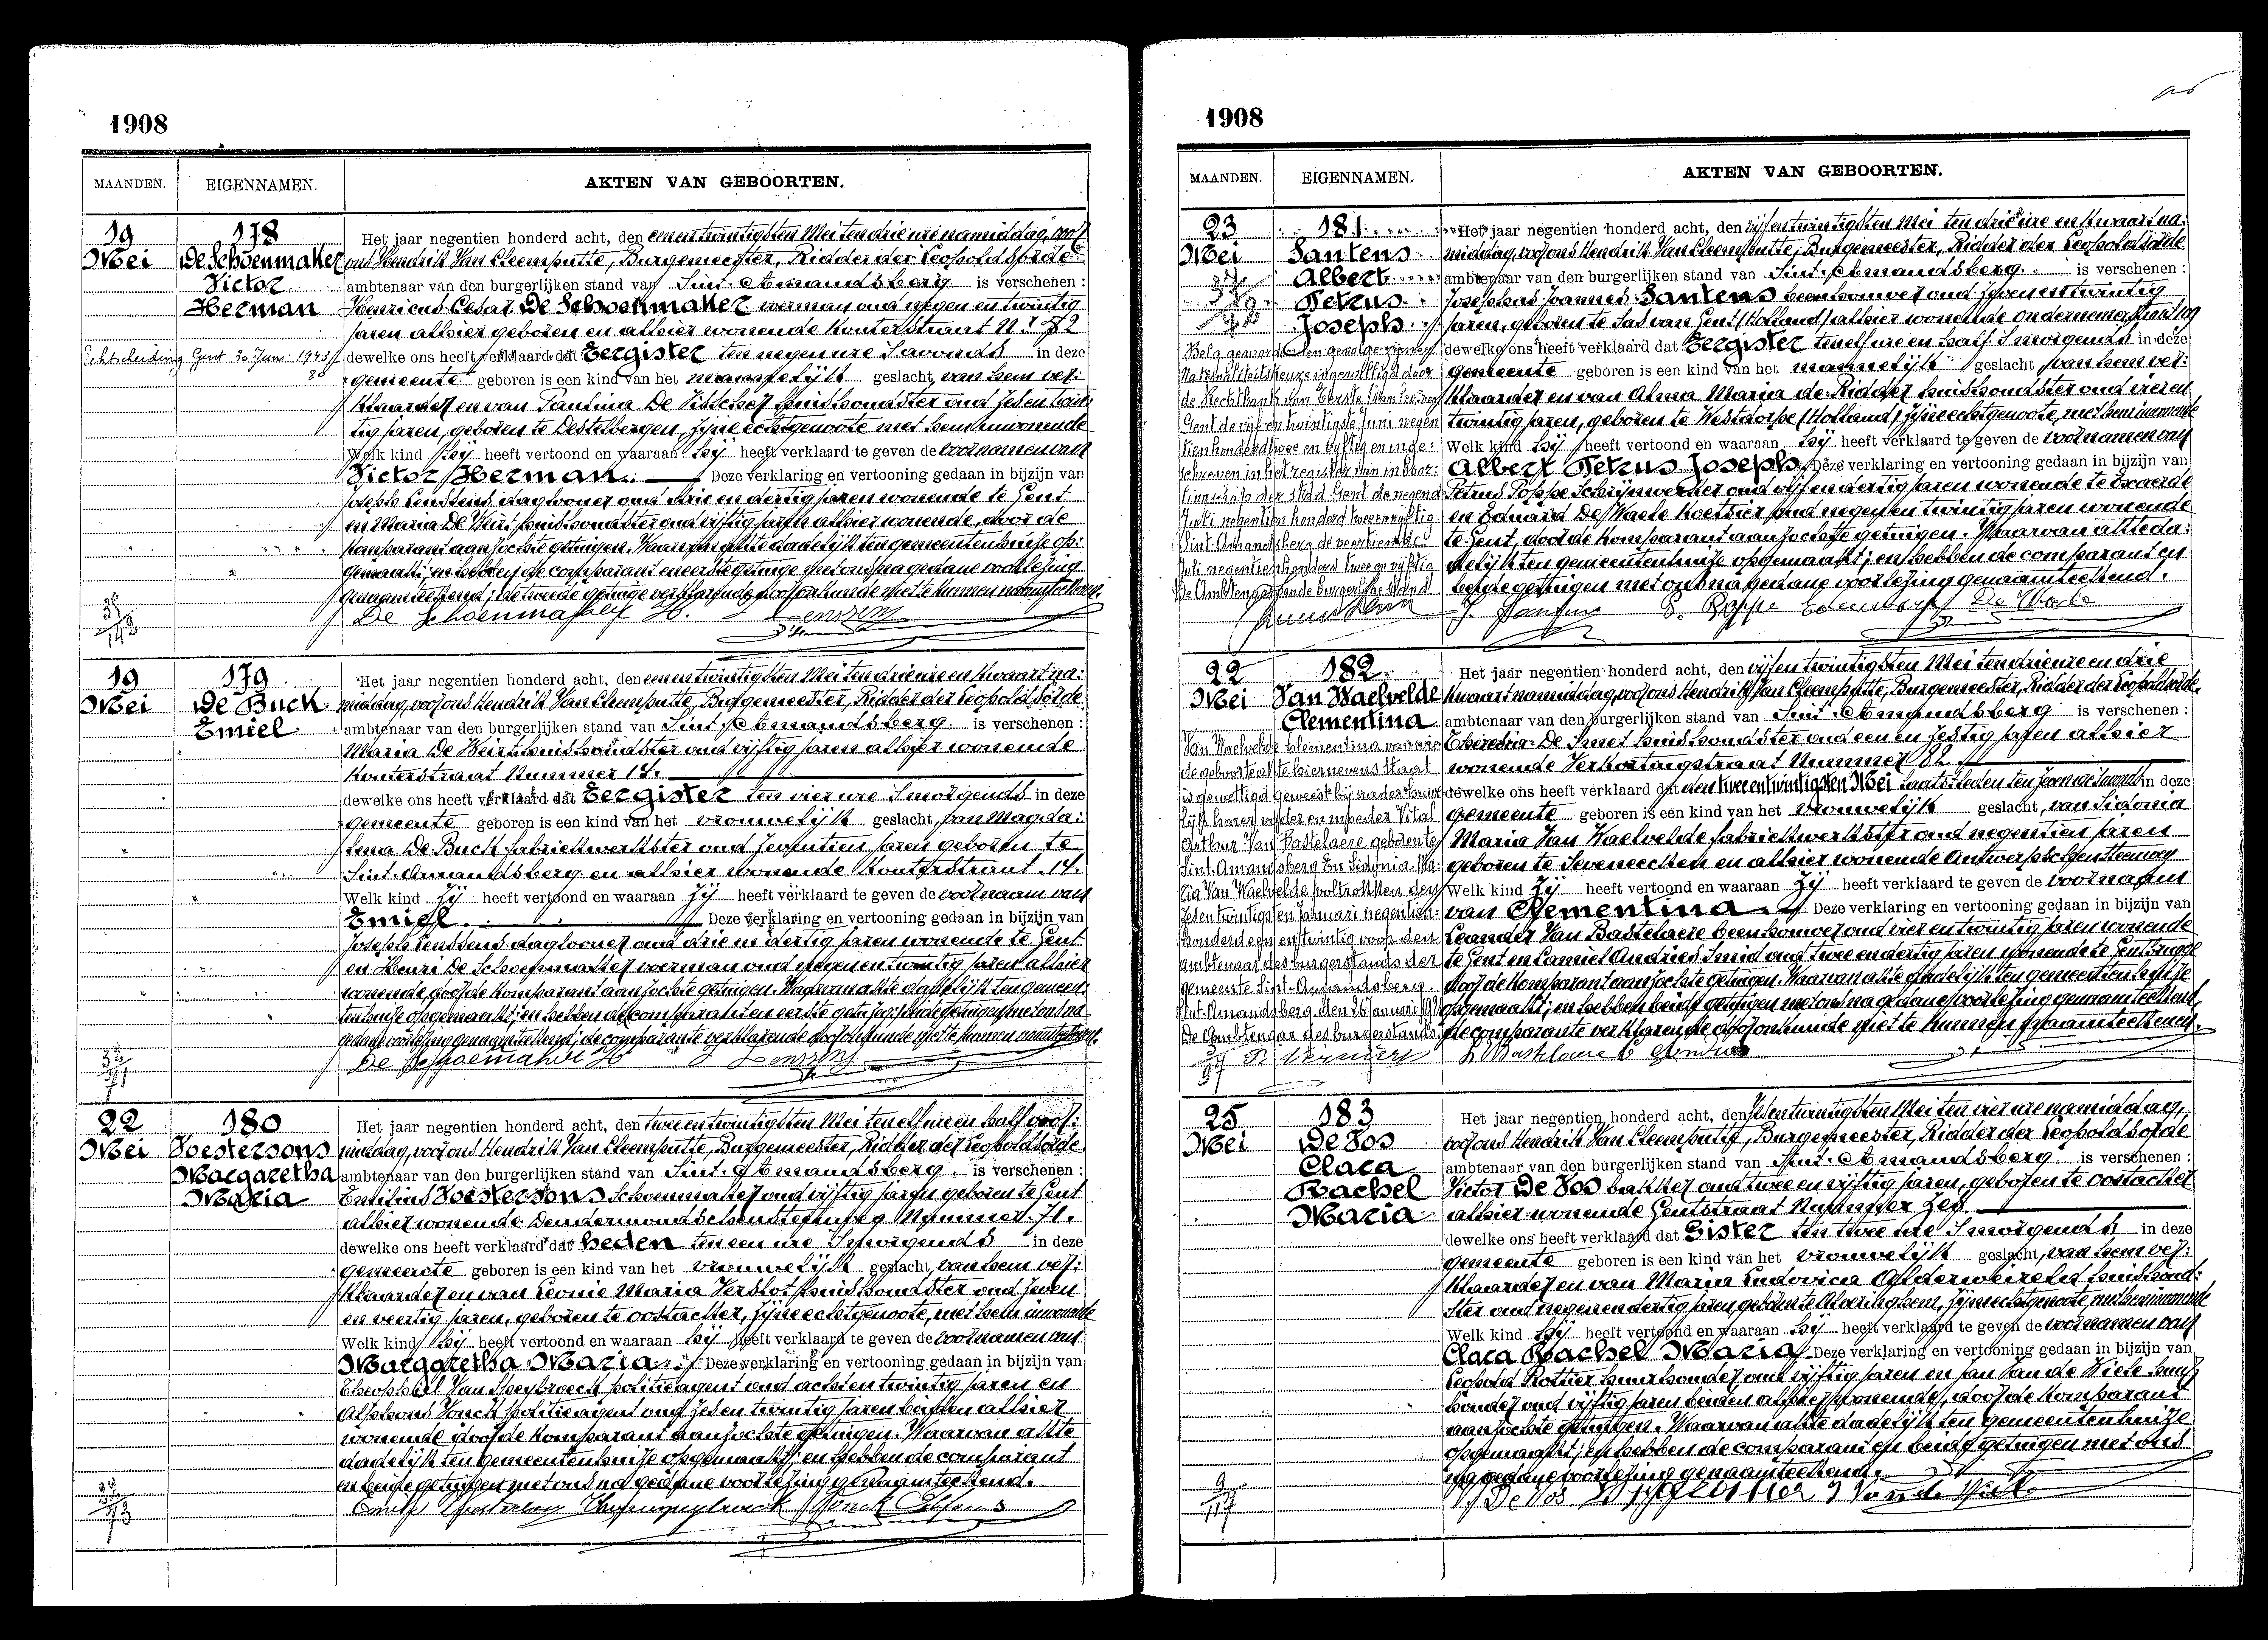 1908
MAANDEN. EIGENNAMEN. AKTEN VAN GEBOORTEN.
19 Mei
178
De Schoenmaker
Victor
Herman
Echtscheiding Gent 30 Juni 1943
Het jaar negentien honderd acht, den eenentwintigsten Mei ten drie ure namiddag, voor
ons Hendrik Van Cleemputte, Burgemeester, Ridder der Leopoldsorde
ambtenaar van den burgerlijken stand van Sint-Amandsberg is verschenen :
Henricus Cesar De Schoenmaker voerman oud negen en twintig
jaren alhier geboren en alhier wonende Kouterstraat N.r 72
dewelke ons heeft verklaard dat Eergister ten negen ure 's avonds in deze
gemeente geboren is een kind van het mannelijk geslacht, van hem ver:
klaarder en van Pantina De Visscher huishoudster oud zes en twin:
tig jaren, geboren te Destelbergen, zijne echtgenoote met hem inwonende
Welk kind hij heeft vertoond en waaraan hij heeft verklaard te geven de voornamen van
Victor Herman. Deze verklaring en vertooning gedaan in bijzijn van
Joseph Lenssens dagloner oud drie en dertig jaren wonende te Gent
en Maria De Keirs huishoudster oud vijftig jaren alhier wonende, door de
komparant aanzochte getuigen. Waarvan akte dadelijk ten gemeentenhuize op:
gemaakt; en hebben de comparant en eerste getuige met ons na gedane voorlezing
genaamteekend; de tweede getuige verklarende door onkunde niet te kunnen naamteekenen.
De Schoenmaker H. Lenssens
19 Mei
179
De Buck
Emiel
Het jaar negentien honderd acht, den eenentwintigsten Mei ten drie ure en kwaart na:
middag, voor ons Hendrik Van Cleemputte, Burgemeester, Ridder der Leopoldsorde
ambtenaar van den burgerlijken stand van Sint-Amandsberg is verschenen :
Maria De Keirs huishoudster oud vijftig jaren alhier wonende
Kouterstraat Nummer 14.
dewelke ons heeft verklaard dat Eergister ten vier ure 's morgends in deze
gemeente geboren is een kind van het vrouwelijk geslacht, van Magda:
lena De Buck fabriekwerkster oud zeventien jaren geboren te
Sint-Amandsberg en alhier wonende Kouterstraat 14.
Welk kind zij heeft vertoond en waaraan zij heeft verklaard te geven de voornaam van
Emiel. Deze verklaring en vertooning gedaan in bijzijn van
Joseph Lenssens dagloner oud drie en dertig jaren wonende te Gent
en Henri De Schoenmaker voerman oud negen en twintig jaren alhier
wonende, door de komparant aanzochte getuigen. Waarvan akte dadelijk ten gemeen:
tenhuize opgemaakt; en hebben beide getuigen met ons na
gedane voorlezing genaamteekend; de comparante verklarende door onkunde niet te kunnen naamteekenen.
De Schoemaker H Lenssens
22 Mei
180
Voestersons
Margaretha
Maria
Het jaar negentien honderd acht, den twee entwintigsten Mei ten elf ure en half voor:
middag, voor ons Hendrik Van Cleemputte, Burgemeester, Ridder der Leopoldsorde
ambtenaar van den burgerlijken stand van Sint-Amandsberg is verschenen :
Emilius Voestersons Schoenmaker oud vijftig jaren geboren te Gent
alhier wonende Dendermondschensteenweg Nummer 71.
dewelke ons heeft verklaard dat heden ten een ure 's morgends in deze
gemeente geboren is een kind van het vrouwelijk geslacht, van hem ver:
klaarder en van Leonie Maria Verslot huishoudster oud zeven
en veertig jaren, geboren te Oostacker, zijne echtgenoote, met hem inwonende
Welk kind hij heeft vertoond en waaraan hij heeft verklaard te geven de voornamen van
Margaretha Maria. Deze verklaring en vertooning gedaan in bijzijn van
Theophiel Van Speybroeck politieagent oud acht en twintig jaren en
Alphons Vonck politieagent oud zes en twintig jaren beiden alhier
wonende door de komparant aanzochte getuigen. Waarvan akte
dadelijk ten gemeentenhuize opgemaakt; en hebben de comparant
en beide getuigen met ons na gedane voorlezing genaamteekend.
1908
MAANDEN. EIGENNAMEN. AKTEN VAN GEBOORTEN.
23 Mei
181
Santens
Albert
Petrus
Joseph
Belg geworden ten gevolge zijner
Nationaliteitskeuze ingewilligd door
de Rechtbank van Eersten Aanleg
Gent de vijf en twintigste Juni negen
tienhonderd twee en vijftig en inge:
schreven in het register van inbor:
lingschap der stad Gent de negende
Juli negentien honderd twee en vijftig
Sint-Amandsberg, de veertiende
Juli negentien honderd twee en vijftig
De Ambtenaar van de burgerlijke stand
Het jaar negentien honderd acht, den vijfentwintigsten Mei ten drie ure en kwaart na:
middag, voor ons Hendrik Van Cleemputte, Burgemeester, Ridder der Leopoldsorde
ambtenaar van den burgerlijken stand van Sint-Amandsberg is verschenen :
Josephus Joannes Santens beenhouwer oud zeven en twintig
jaren, geboren te Sas van Gent (Holland) alhier wonende Ondernemerstraat
dewelke ons heeft verklaard dat Eergister ten elf ure en half 's morgends in deze
gemeente geboren is een kind van het mannelijk geslacht van hem ver:
klaarder en van Alma Maria de Ridder huishoudster oud vier en
twintig jaren, geboren te Westdorpe (Holland) zijne echtgenoote, met hem inwonende
Welk kind hij heeft vertoond en waaraan hij heeft verklaard te geven de voornamen van
Albert Petrus Joseph. Deze verklaring en vertooning gedaan in bijzijn van
Petrus Poppe Schrijnwerker oud vijf en dertig jaren wonende te Exaerde
en Eduard De Waele Koetsier oud negen en twintig jaren wonende
te Gent, door de komparant aanzochte getuigen. Waarvan akte da:
delijk ten gemeentenhuize opgemaakt; en hebben de comparant en
beide getuigen met ons na gedane voorlezing genaamteekend.
J. Santens P. Poppe Edward De Waele
22 Mei
182
Van Waelvelde
Clementina
Van Waelvelde Clementina van wie
de geboorteakte hiernevens staat
is gewettigd geweest bij nader huwe
lijk harer vader en moeder Vital
Arthur Van Bastelaere geboren te
Sint-Amandsberg en Sidonia Ma:
ria Van Waelvelde voltrokken den
zesentwintigsten Januari negentien
honderd een en twintig voor den
ambtenaar des burgerstands der
gemeente Sint-Amandsberg.
Sint-Amandsberg, den 26 Januari 1921
De Ambtenaar des burgerstands
Het jaar negentien honderd acht, den vijfentwintigsten Mei ten drie ure en drie
kwaart namiddag, voor ons Hendrik Van Cleemputte, Burgemeester, Ridder der Leopoldsorde,
ambtenaar van den burgerlijken stand van Sint-Amandsberg is verschenen :
Theresia De Smet huishoudster oud een en zestig jaren alhier
wonende Verkortingstraat Nummer 82.
dewelke ons heeft verklaard dat den tweeentwintigsten Mei laatstleden ten zeven ure 's avonds in deze
gemeente geboren is een kind van het vrouwelijk geslacht, van Sidonia
Maria Van Waelvelde fabriekwerkster oud negentien jaren
geboren te Seveneecken en alhier wonende Antwerpschensteenweg
Welk kind zij heeft vertoond en waaraan zij heeft verklaard te geven de voornaam
van Clementina. Deze verklaring en vertooning gedaan in bijzijn van
Leander Van Bastelaere beenhouwer oud vier en twintig jaren wonende
te Gent en Camiel Andries Smid oud twee en dertig jaren wonende te Gentbrugge
door de komparant aanzochte getuigen. Waarvan akte dadelijk ten gemeentenhuize
opgemaakt; en hebben beide getuigen met ons na gedane voorlezing genaamteekend,
de comparante verklarende door onkunde niet te kunnen naamteekenen.
L. Bastelaere C Andries
25 Mei
183
De Vos
Clara
Rachel
Maria
Het jaar negentien honderd acht, den zesentwintigsten Mei ten vier ure namiddag,
voor ons Hendrik Van Cleemputte, Burgemeester, Ridder der Leopoldsorde
ambtenaar van den burgerlijken stand van Sint-Amandsberg is verschenen :
Victor De Vos bakker oud twee en vijftig jaren, geboren te Oostacker
alhier wonende Gentstraat Nummer Zes.
dewelke ons heeft verklaard dat Gister ten twee ure 's morgends in deze
gemeente geboren is een kind van het vrouwelijk geslacht, van hem ver:
klaarder en van Maria Ludovica Alderweireld huishoud:
ster oud negen en dertig jaren geboren te Moeringhem, zijne echtgenoote, met hem inwonende
Welk kind hij heeft vertoond en waaraan hij heeft verklaard te geven de voornamen van
Clara Rachel Maria. Deze verklaring en vertooning gedaan in bijzijn van
Leopold Rottier huurhouder oud vijftig jaren en Jan Van de Viele huur
houder oud vijftig jaren beiden alhier wonende, door de komparant
aanzochte getuigen. Waarvan akte dadelijk ten gemeentenhuize
opgemaakt; en hebben de comparant en beide getuigen met ons
na gedane voorlezing genaamteekend.
V De Vos